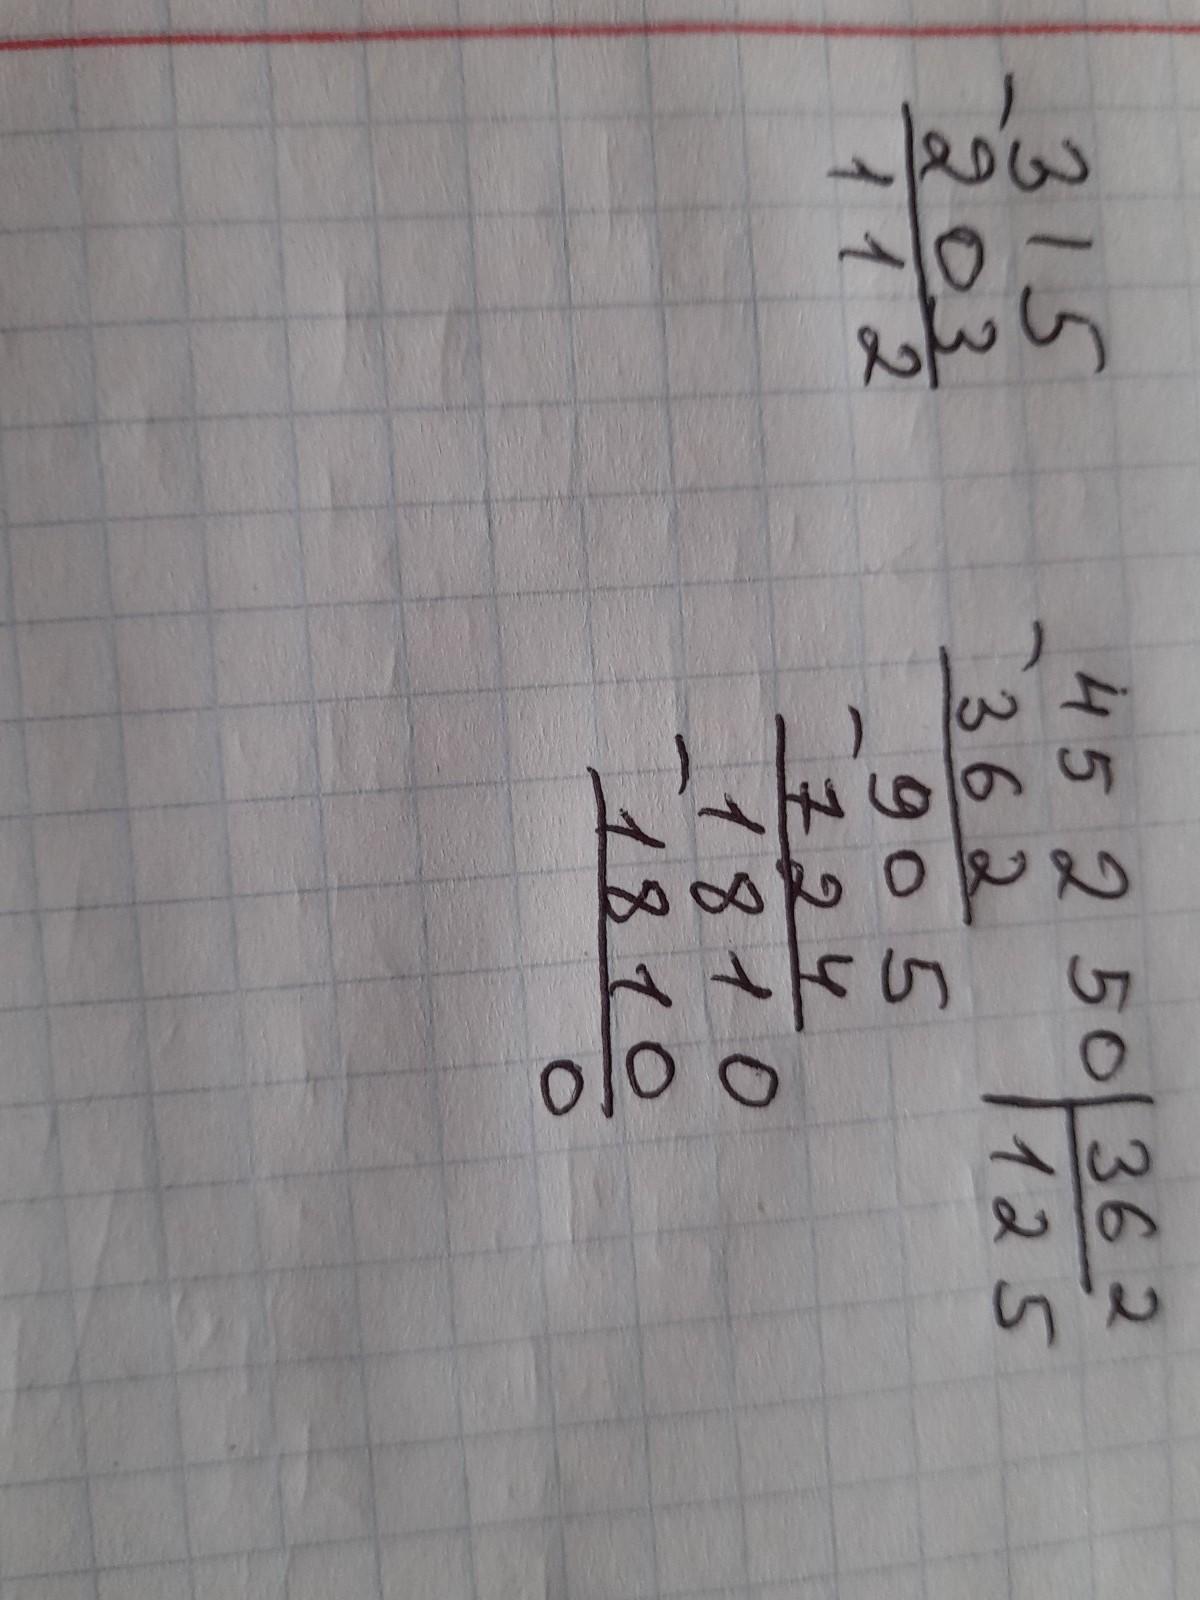 - 315
203
112
- 45250 | 362
362 125
- 905
724
- 1810
1810
0